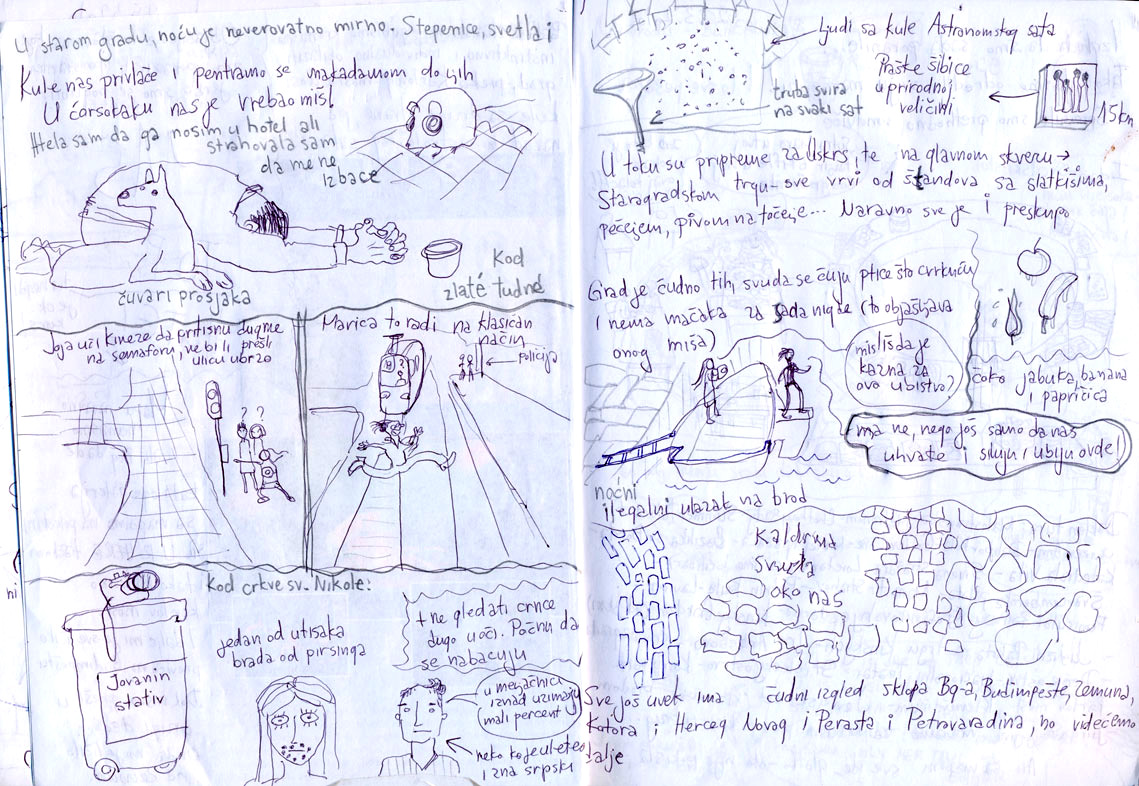 U starom gradu, noću je neverovatno mirno. Stepenice, svetla i
Kule nas privlače i pentramo se makadamom do njih
U ćorsokaku nas je vrebao miš!
Htela sam da ga nosim u hotel ali
strahovala sam
da me ne
izbace
čuvari prosjaka
Kod
zlaté tudné
Joja uči Kineze da pritisnu dugme
na semaforu, ne bi li prešli
ulicu ubrzo
? ?
Marica to radi na klasičan
način
policija
Kod crkve sv. Nikole:
Jovanin
stativ
jedan od utisaka
brada od pirsinga
+ ne gledati crnce
dugo u oči. Počnu da
se nabacuju
u menjačnici
iznad uzimaju
mali percent
neko ko je uleteo
i zna srpski
ljudi sa kule Astronomskog sata
Praške šibice
u prirodnoj
veličini
15kn
truba svira
na svaki sat
U toku su pripreme za Uskrs, te na glavnom skveru →
Starogradskom trgu - sve vrvi od štandova sa slatkišima,
pečenjem, pivom na točenje... Naravno sve je i preskupo
Grad je čudno tih, svuda se čuju ptice što cvrkuću
i nema mačaka za sada nigde (to objašnjava
onog miša)
čoko jabuka, banana
i papričica
misliš da je
kazna za
ovo ubistvo?
ma ne, nego još samo da nas
uhvate i siluju i ubiju ovde!
noćni
ilegalni ulazak na brod
Kaldrma
svuda
oko nas
Sve još uvek ima čudni izgled sklopa Bg-a, Budimpešte, Zemuna,
Kotora i Herceg Novog i Perasta i Petrovaradina, no videćemo
dalje